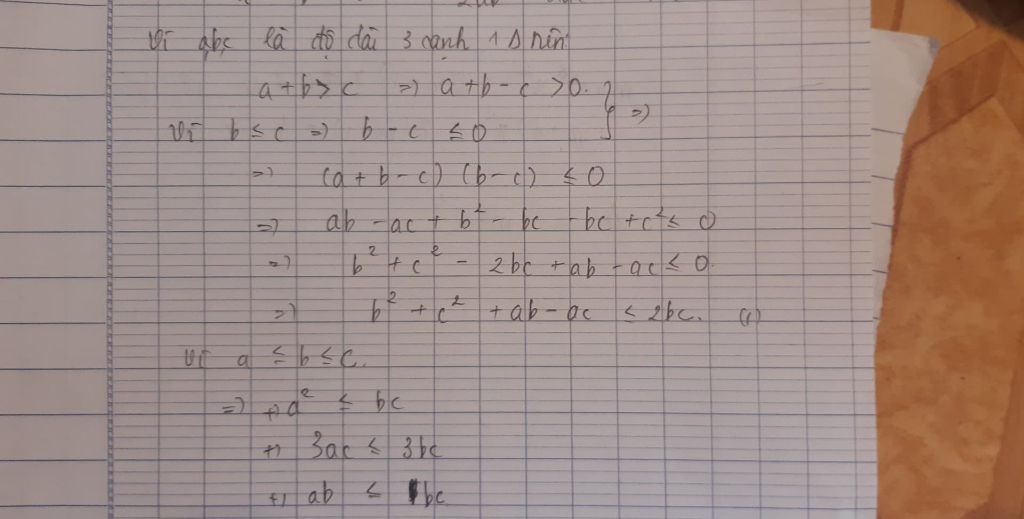 Vì abc là độ dài 3 cạnh 1 Δ nên
a + b > c => a + b - c > 0. } =>
Vì b ≤ c => b - c ≤ 0
=> (a + b - c) (b - c) ≤ 0
=> ab - ac + b² - bc - bc + c² ≤ 0
=> b² + c² - 2bc + ab - ac ≤ 0.
=> b² + c² + ab - ac ≤ 2bc. (1)
Vì a ≤ b ≤ c.
=> +) a² ≤ bc
+) 3ac ≤ 3bc
+) ab ≤ bc